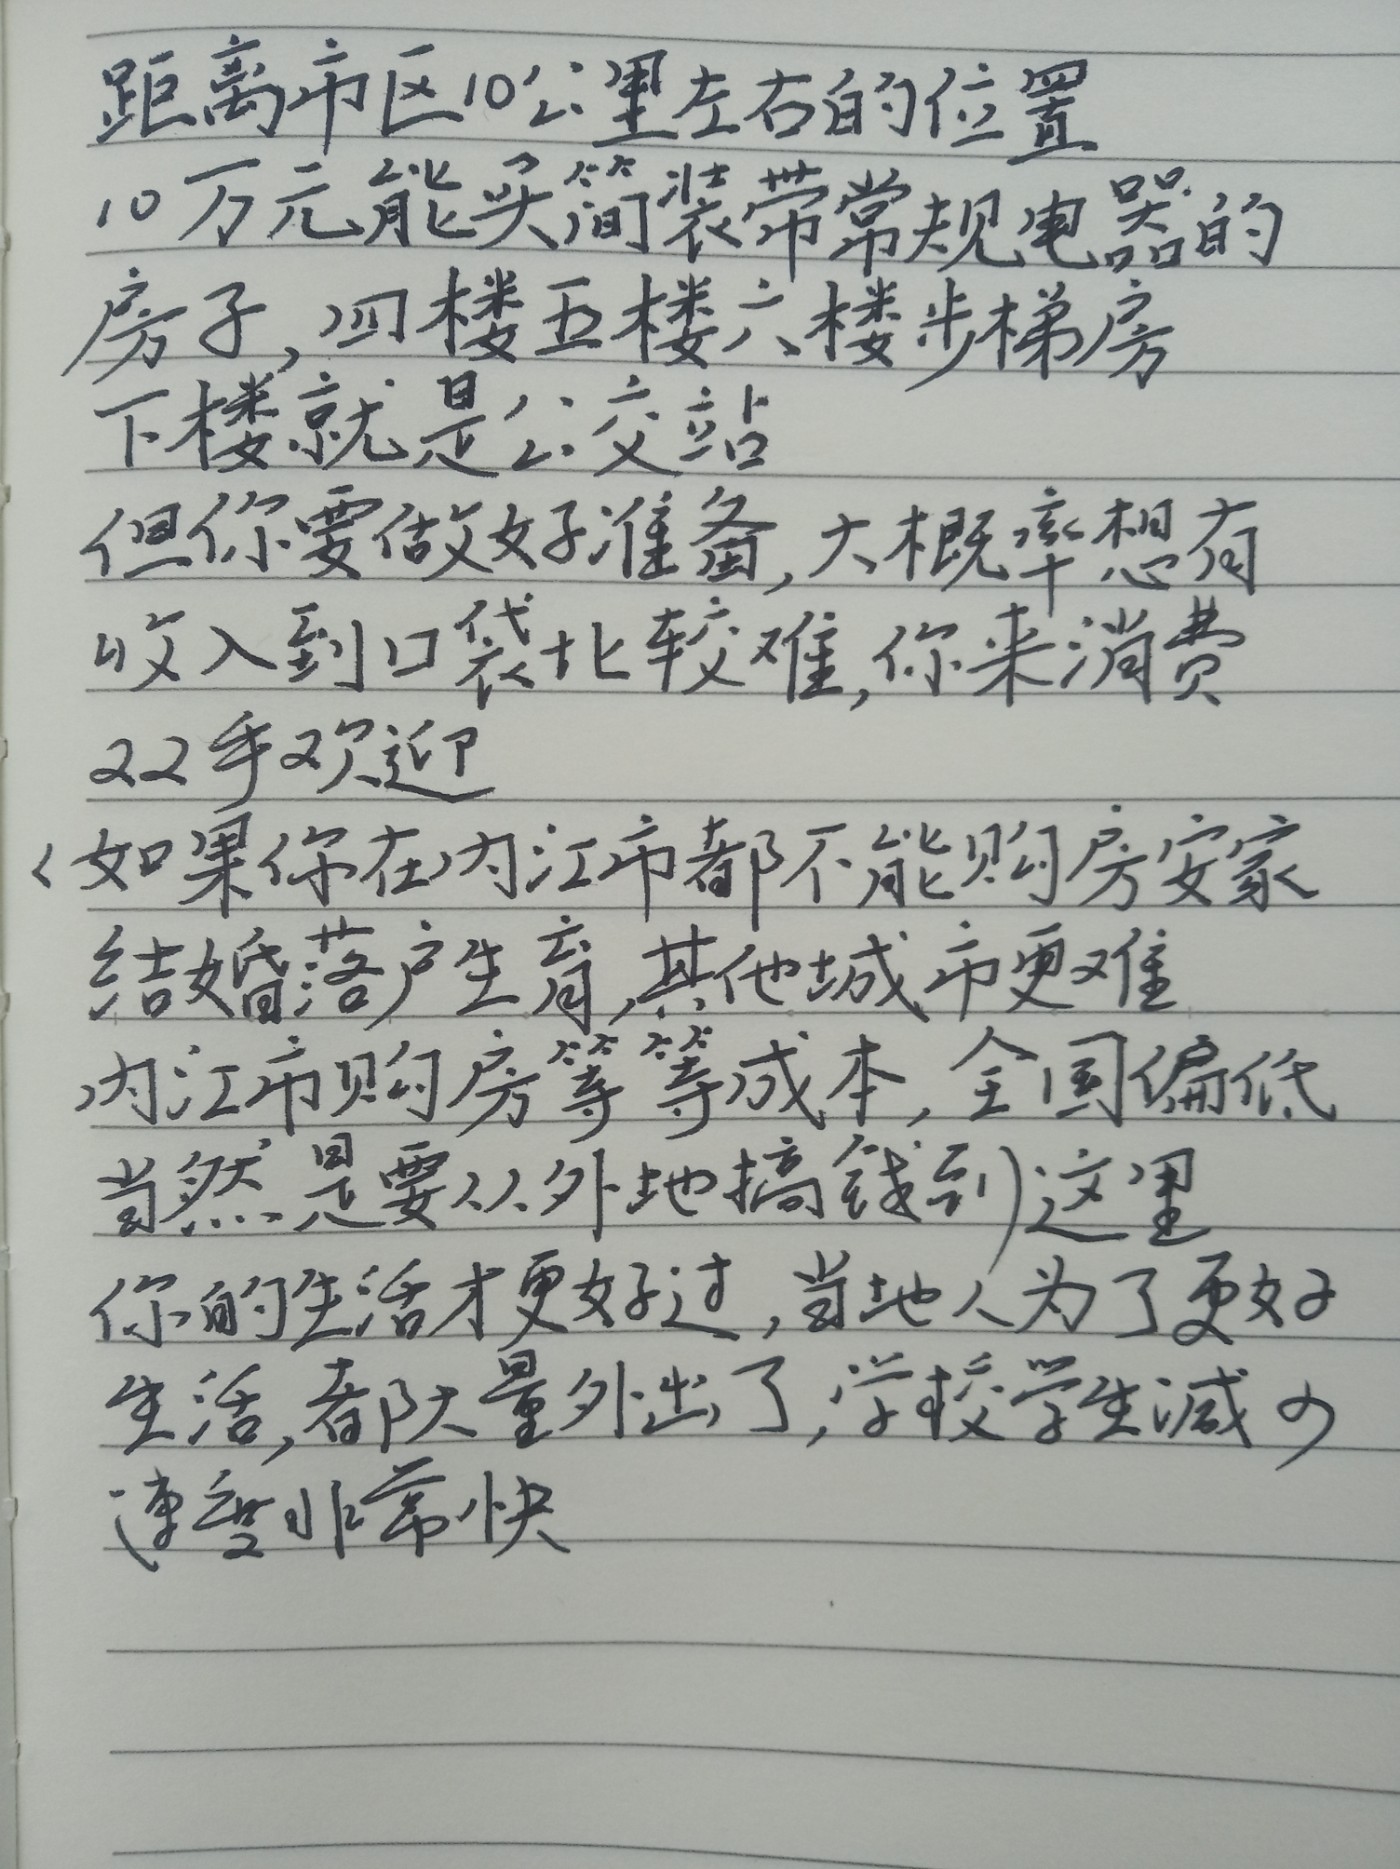 距离市区10公里左右的位置
10万元能买简装带常规电器的
房子,四楼五楼六楼步梯房
下楼就是公交站
但你要做好准备,大概率想有
收入到口袋比较难,你来消费
22手欢迎
<如果你在内江市都不能购房安家
结婚落户生育,其他城市更难
内江市购房等等成本,全国偏低
当然是要从外地搞钱到这里
你的生活才更好过,当地人为了更好
生活,都大量外出了,学校学生减少
速度非常快